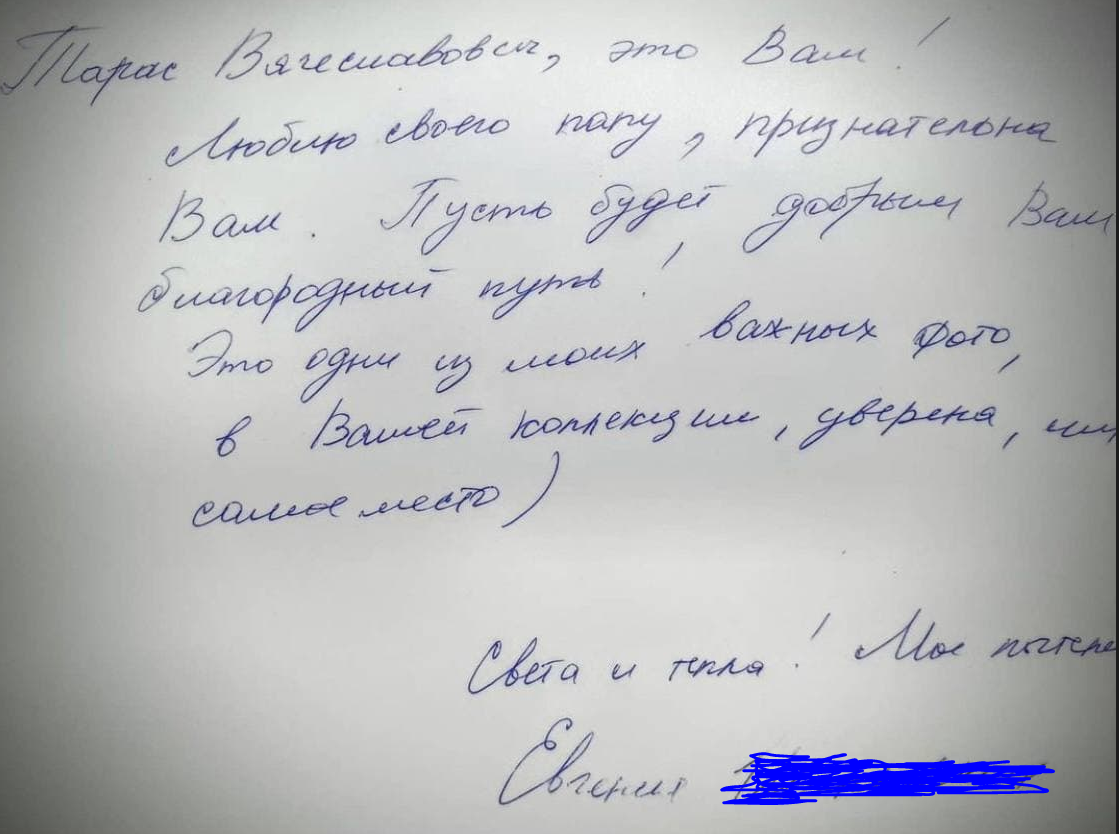 Тарас Вячеславович, это Вам!
Люблю своего папу, признательна
Вам. Пусть будет добрым Вам
благородный путь!
Это одни из моих важных фото,
в Вашей коллекции, уверена, им
самое место)
Света и тепла! Мое почтение
Евгения